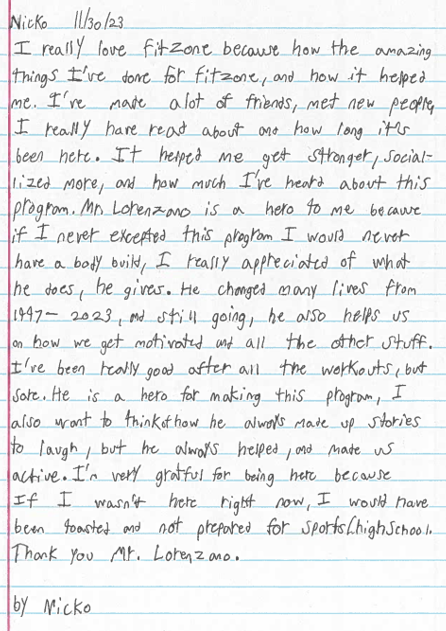 Nicko 11/30/23
I really love fitzone because how the amazing
things I've done for fitzone, and how it helped
me. I've made alot of friends, met new people,
I really have read about and how long it's
been here. It helped me get stronger, social-
lized more, and how much I've heard about this
program. Mr. Lorenzano is a hero to me because
if I never excepted this program I would never
have a body build, I really appreciated of what
he does, he gives. He changed many lives from
1997- 2023, and still going, he also helps us
on how we get motivated and all the other stuff.
I've been really good after all the workouts, but
sore. He is a hero for making this program, I
also want to think of how he always made up stories
to laugh, but he always helped, and made us
active. I'm very gratful for being here because
If I wasn't here right now, I would have
been toasted and not prepared for sports/highschool.
Thank you Mr. Lorenzano.
by Nicko